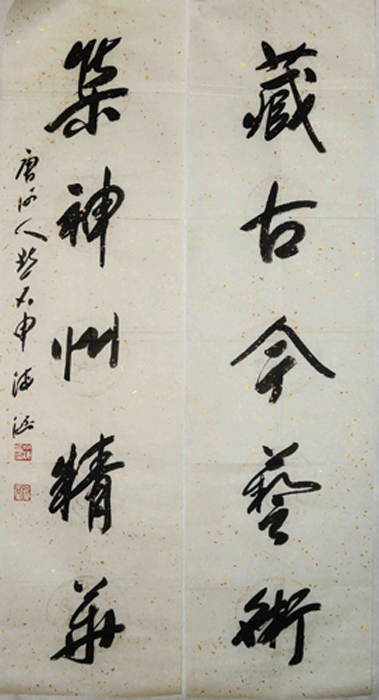 藏古今藝術
集神州精華
唐河人申海